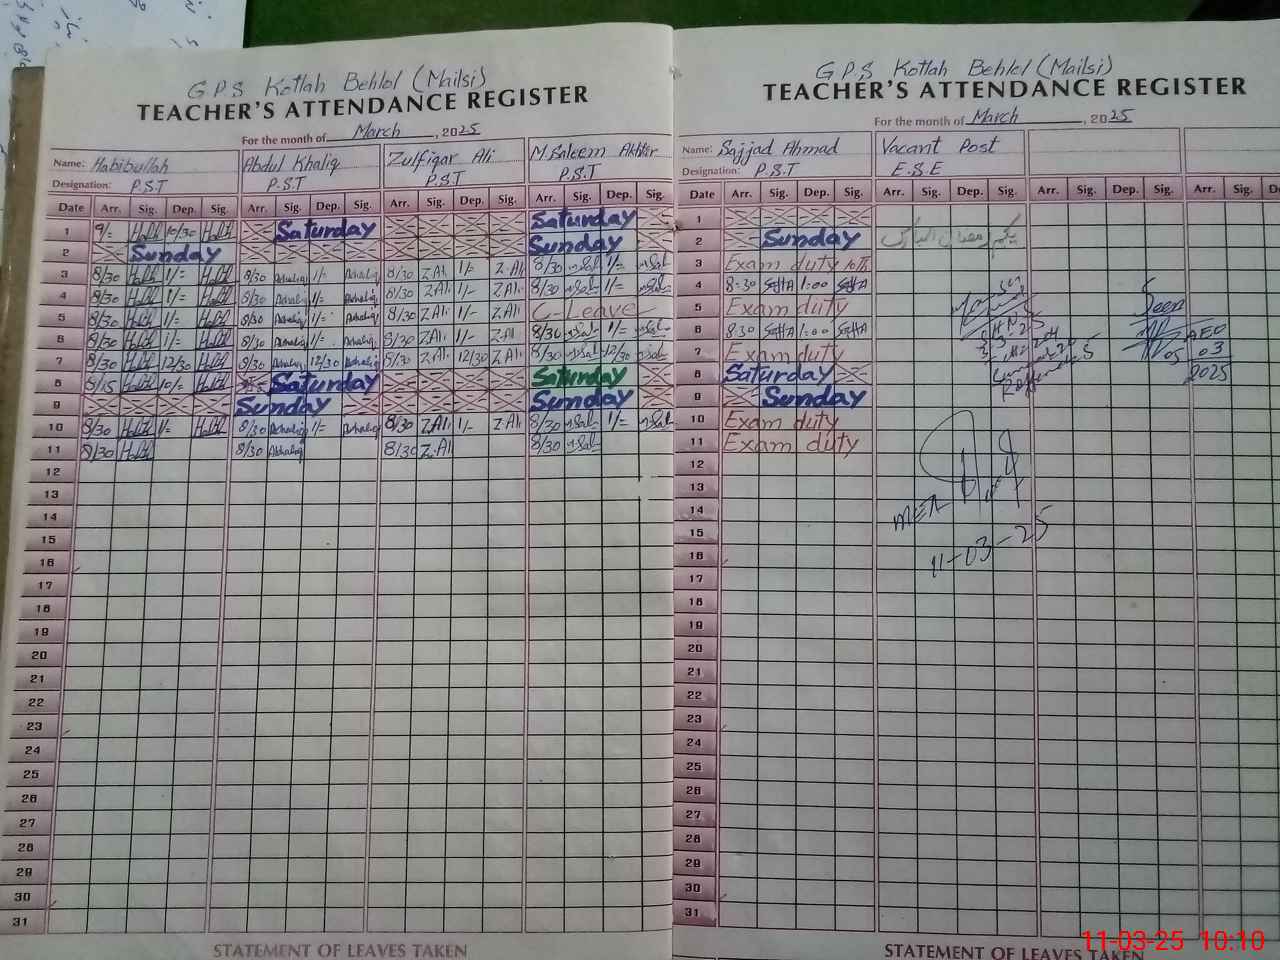 G.P.S Kotlah Behlol (Mailsi)
TEACHER'S ATTENDANCE REGISTER
For the month of March, 2025
Name: Habibullah Abdul Khaliq Zulfiqar Ali M. Saleem Akhter
Designation: P.S.T P.S.T P.S.T P.S.T
Date Arr. Sig. Dep. Sig. Arr. Sig. Dep. Sig. Arr. Sig. Dep. Sig. Arr. Sig. Dep. Sig.
1 9/= 10/30 Saturday Saturday
2 Sunday Sunday
3 8/30 1/= 8/30 1/- 8/30 Z.Ali 1/- Z.Ali 8/30 1/=
4 8/30 1/= 8/30 1/= 8/30 Z.Ali 1/- Z.Ali 8/30 1/=
5 8/30 1/= 8/30 1/= 8/30 Z.Ali 1/- Z.Ali C-Leave
6 8/30 1/= 8/30 1/- 8/30 Z.Ali 1/- Z.Ali 8/30 1/=
7 8/30 12/30 8/30 12/30 8/30 Z.Ali 12/30 Z.Ali 8/30 12/30
8 10/= Saturday Saturday
9 Sunday Sunday
10 8/30 1/= 8/30 1/= 8/30 Z.Ali 1/- Z.Ali 8/30 1/=
11 8/30 8/30 8/30 Z.Ali 8/30
12
13
14
15
16
17
18
19
20
21
22
23
24
25
26
27
28
29
30
31
STATEMENT OF LEAVES TAKEN
G.P.S Kotlah Behlol (Mailsi)
TEACHER'S ATTENDANCE REGISTER
For the month of March, 2025
Name: Sajjad Ahmad Vacant Post
Designation: P.S.T E.S.E
Date Arr. Sig. Dep. Sig. Arr. Sig. Dep. Sig. Arr. Sig. Dep. Sig. Arr. Sig. D
1
2 Sunday یکم رمضان المبارک
3 Exam duty 10th
4 8:30 1:00
5 Exam duty Seen
6 8:30 1:00 AEO
7 Exam duty 05 03
8 Saturday 2025
9 Sunday
10 Exam duty
11 Exam duty
12
13
14 MEA
15
16 11-03-25
17
18
19
20
21
22
23
24
25
26
27
28
29
30
31
STATEMENT OF LEAVES TAKEN
11-03-25 10:10